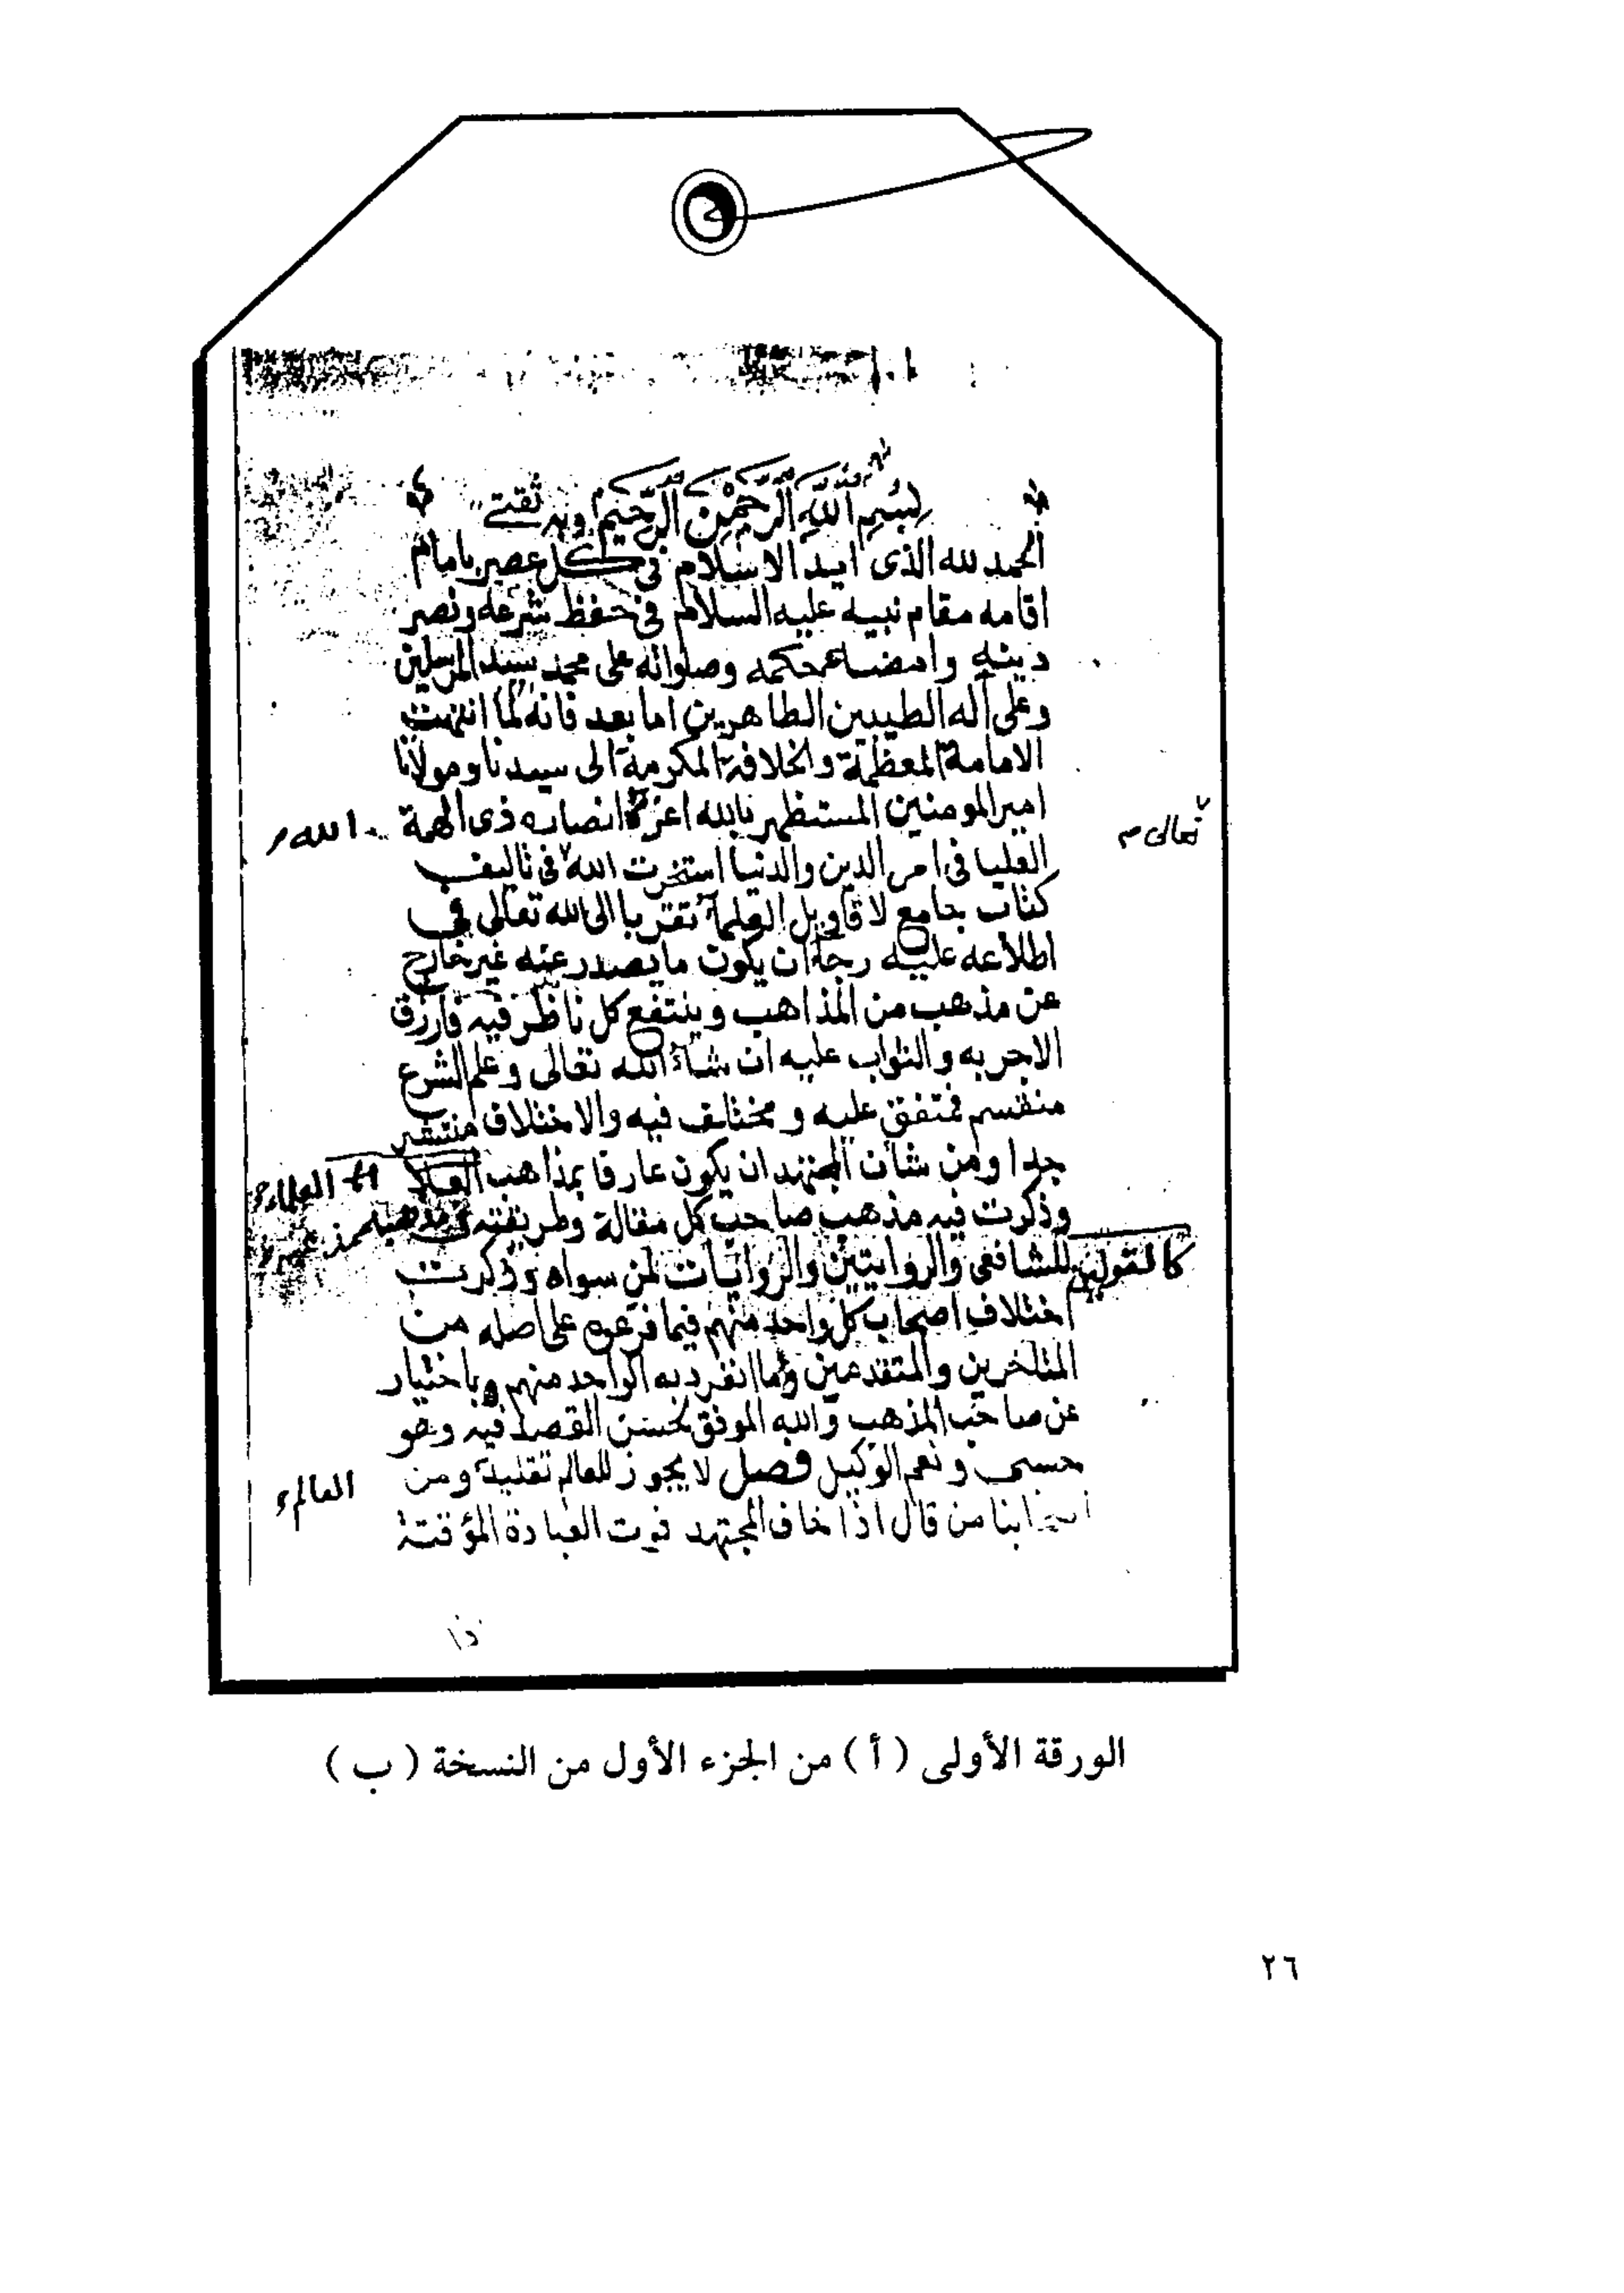 بسم الله الرحمن الرحيم وبه ثقتي
الحمد لله الذى ايد الاسلام فى كل عصر بامام
اقامه مقام نبيه عليه السلام فى حفظ شرعه ونصر
دينه وامضاء حكمه وصلواته على محمد سيد المرسلين
وعلى آله الطيبين الطاهرين اما بعد فانه لما انتهت
الامامة المعظمة والخلافة المكرمة الى سيدنا ومولانا
امير المومنين المستظهر بالله اعز انصاره ذى الهمة
الله
تعالى
العليا فى امر الدين والدنيا استخرت الله فى تاليف
كتاب جامع لاقاويل العلمآ تقربا الى الله تعالى فى
اطلاعه عليه رجآ ان يكون ما يصدر عنه غير خارج
عن مذهب من المذاهب وينتفع كل ناظر فيه فارزق
الاجر به والثواب عليه ان شآ الله تعالى وعلم الشرع
منقسم فمتفق عليه ومختلف فيه والاختلاف منتشر
جدا ومن شان المجتهد ان يكون عارفا بمذاهب
العلماء
وذكرت فيه مذهب صاحب كل مقالة وطريقته
كالقولين للشافعى والروايتين والروايات لمن سواه وذكرت
اختلاف اصحاب كل واحد منهم فيما فرعوه على اصله من
المتاخرين والمتقدمين وما انفرد به الواحد منهم وباختيار
عن صاحب المذهب والله الموفق لحسن القصد فيه وهو
حسبى ونعم الوكيل فصل لا يجوز للعالم تقليد ومن
العالم
اصحابنا من قال اذا خاف المجتهد فوت العبادة المؤقتة
الورقة الأولى ( أ ) من الجزء الأول من النسخة ( ب )
٢٦